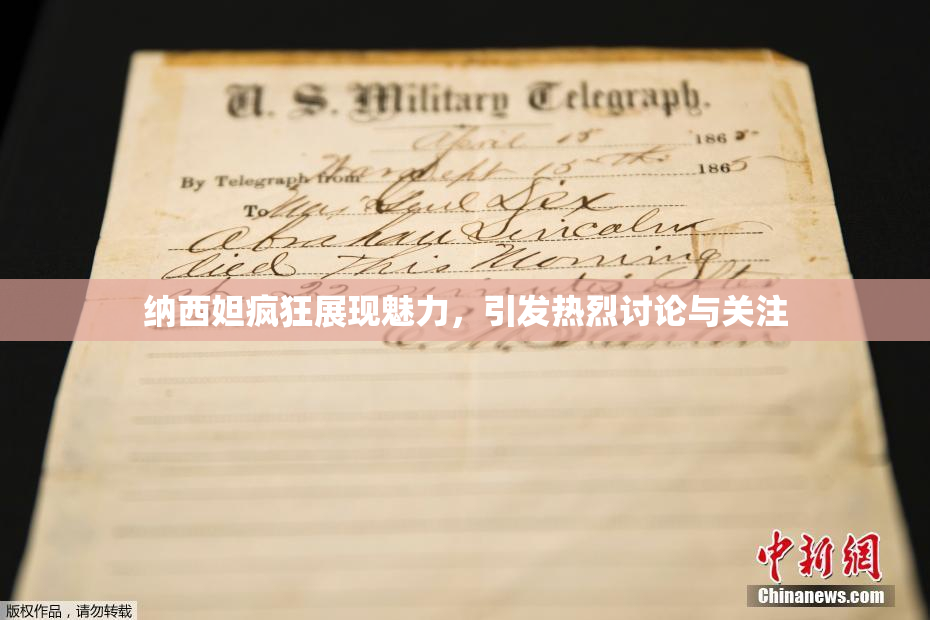 U. S. Military Telegraph.
April 15 1865
By Telegraph from War Dept 15th 1865
To Maj Genl Dix
Abraham Lincoln
died This Morning
at 22 minutes after
纳西妲疯狂展现魅力，引发热烈讨论与关注
E. M. Stanton
中新网
Chinanews.com
版权作品，请勿转载